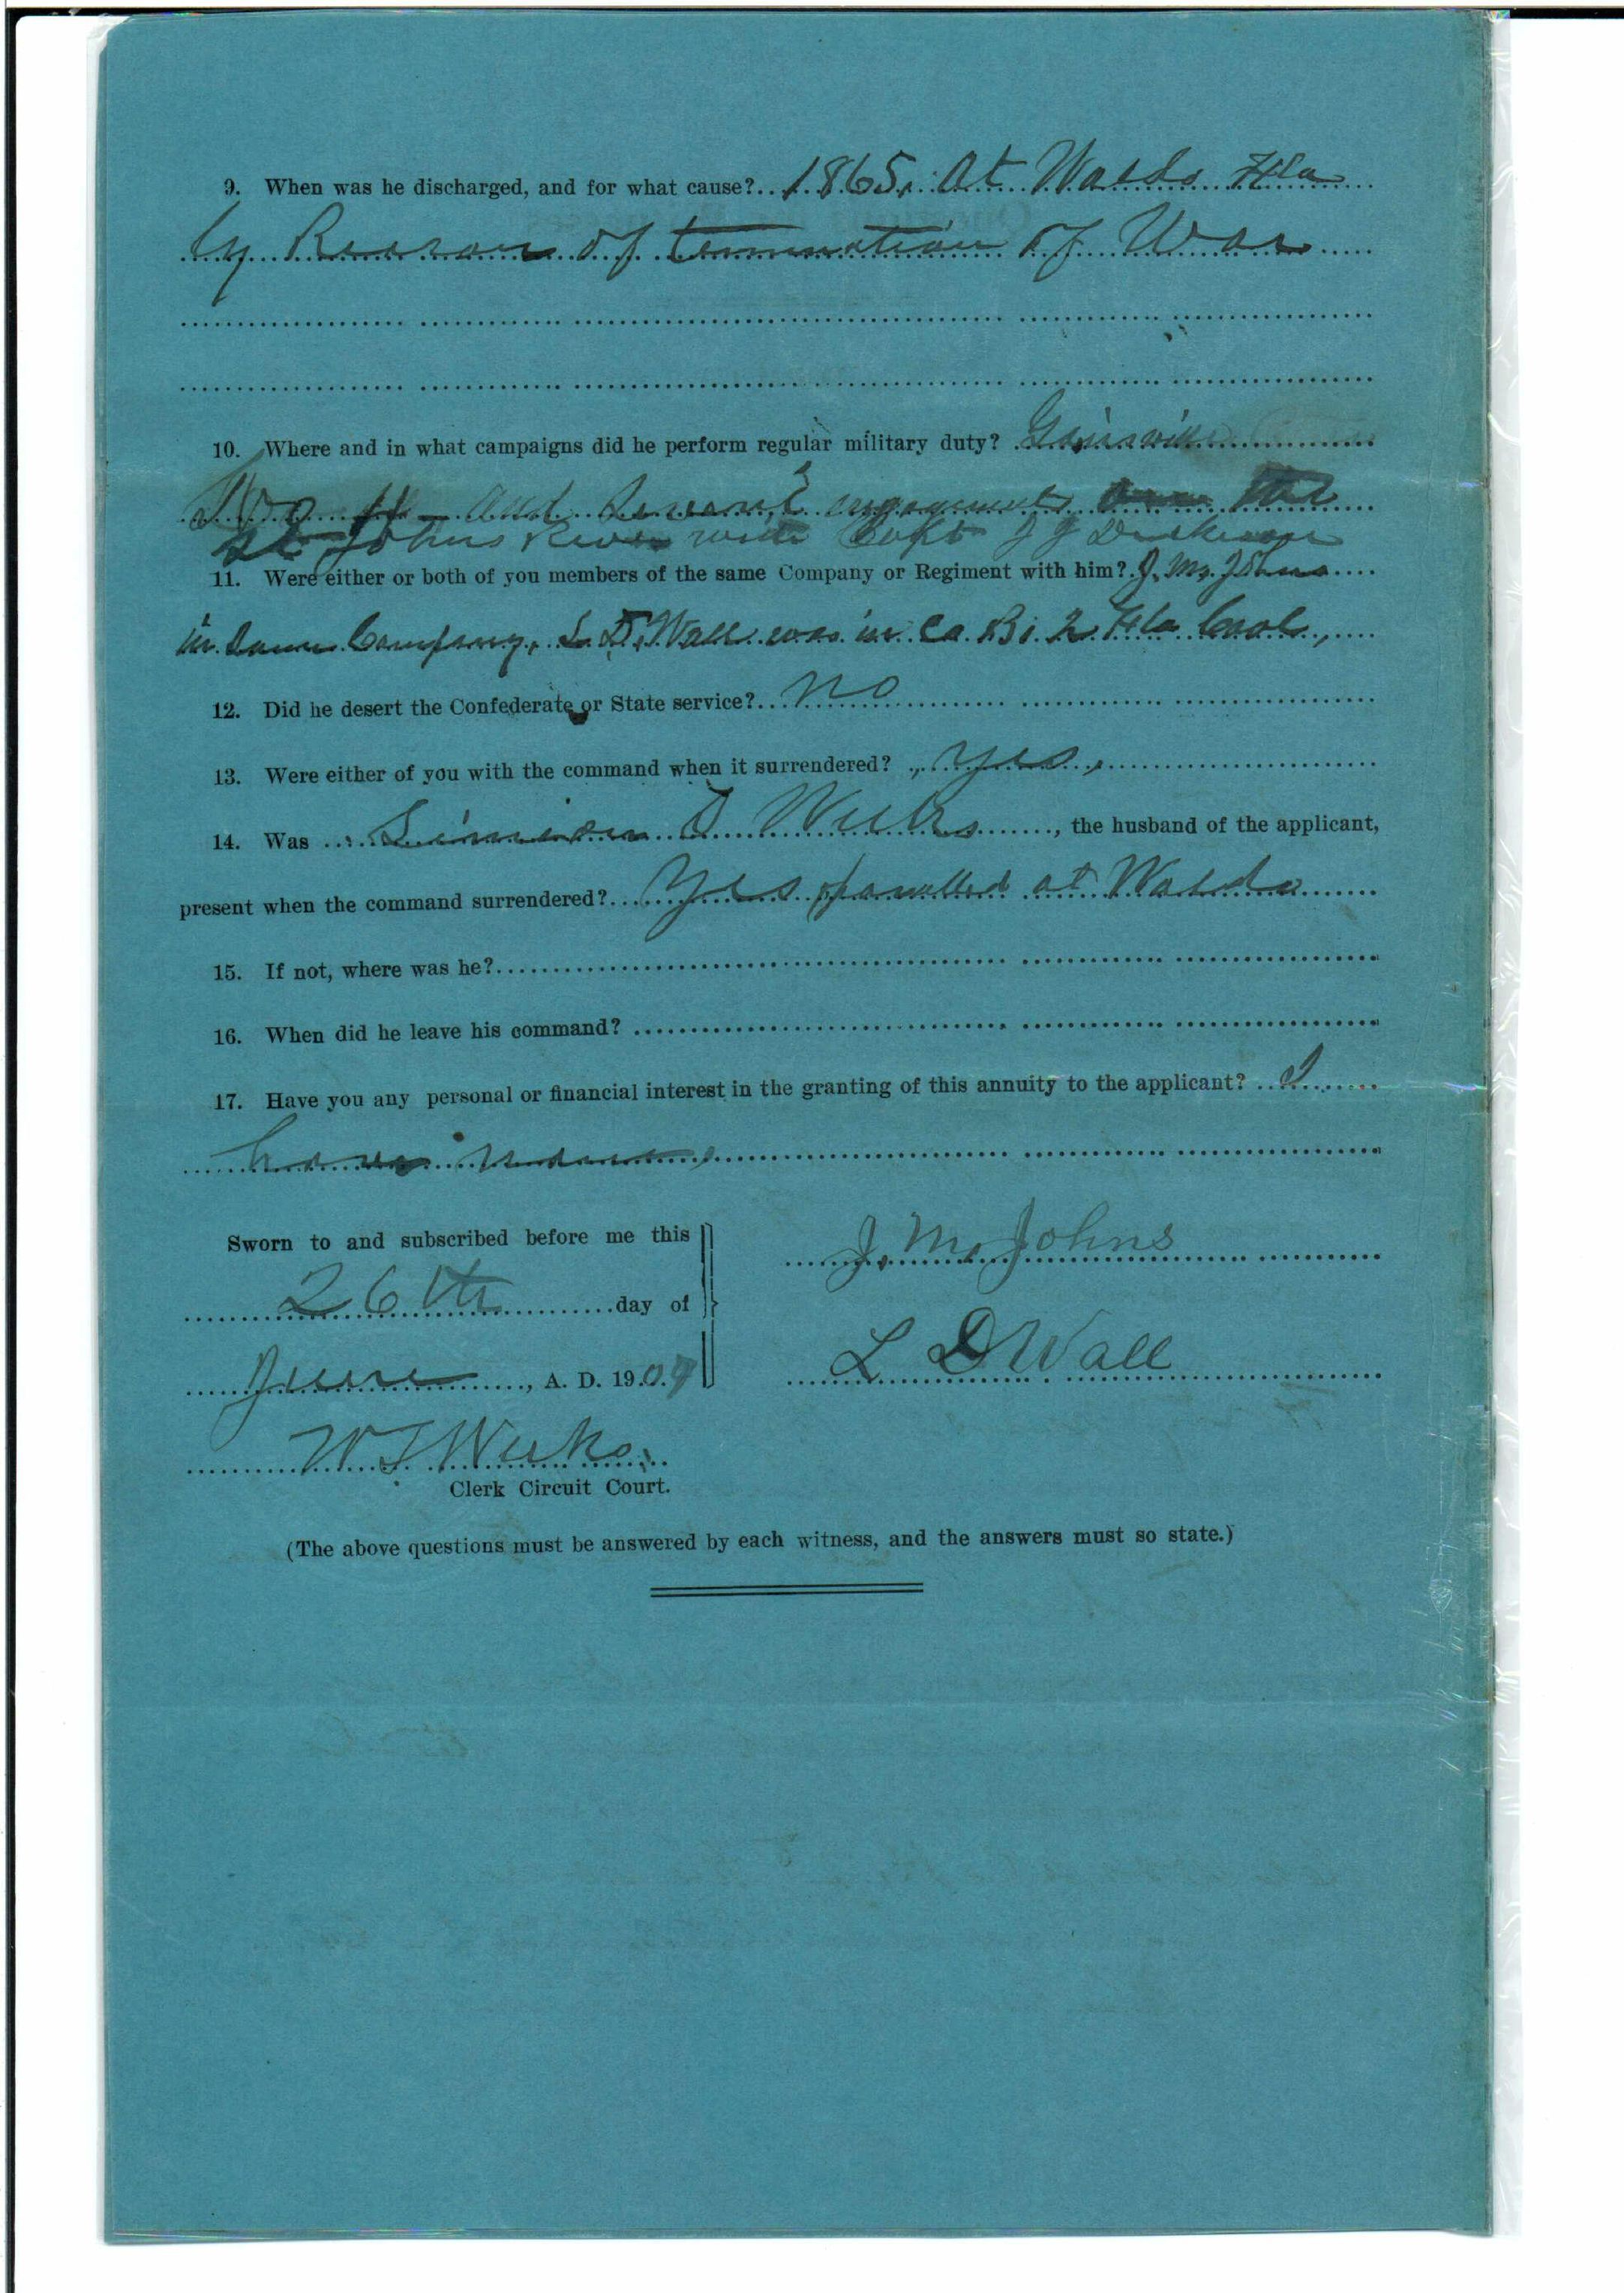 9. When was he discharged, and for what cause? 1865, At Waldo Fla
by Reason of termination of War
10. Where and in what campaigns did he perform regular military duty? Gainsville
and Several engagements on the
St Johns River with Capt J J Dickison
11. Were either or both of you members of the same Company or Regiment with him? J. M. Johns
in Same Company, L. D. Wall was in Co. B. 2 Fla Cavl,
12. Did he desert the Confederate or State service? No
13. Were either of you with the command when it surrendered? Yes,
14. Was Simeon D Weeks, the husband of the applicant,
present when the command surrendered? Yes parolled at Waldo
15. If not, where was he?
16. When did he leave his command?
17. Have you any personal or financial interest in the granting of this annuity to the applicant? I
have none,
Sworn to and subscribed before me this
26th day of
June, A. D. 1909
J. M. Johns
L D Wall
W T Weeks
Clerk Circuit Court.
(The above questions must be answered by each witness, and the answers must so state.)